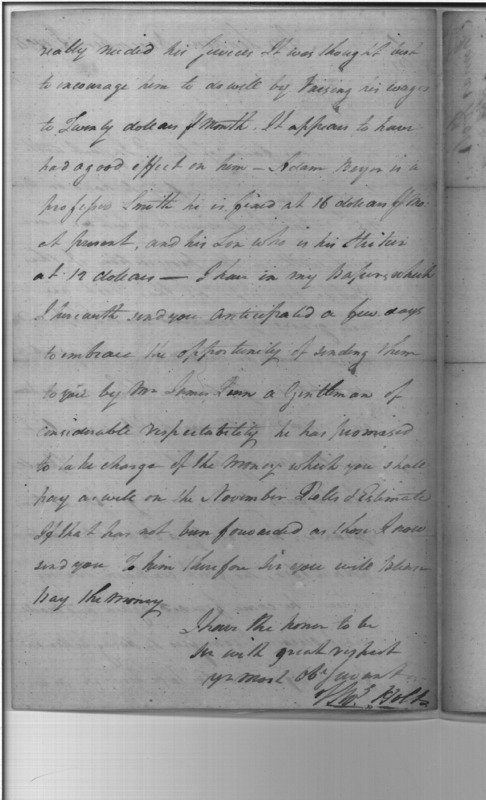 really needed his Services It was thought just
to encourage him to do well by Raising his wages
to Twenty dollars P Month. It appears to have
had a good effect on him – Adam Boyer is a
Smith he is fixed at 16 dollars P Mo
at present, and his Son who is his Striker
at 12 dollars — I have in my Papers which
I herewith send you anticipated a few days
to embrace the opportunity of sending them
to you by Mr James a Gentleman of
considerable respectability he has promised
to take charge of the Money which you shall
pay as well on the November Rolls & Estimate
If that has not been forwarded as those I now
send you To him therefore Sir you will Please
Pay the Money
I have the honor to be
Sir with great respect
yr most Obt Servant